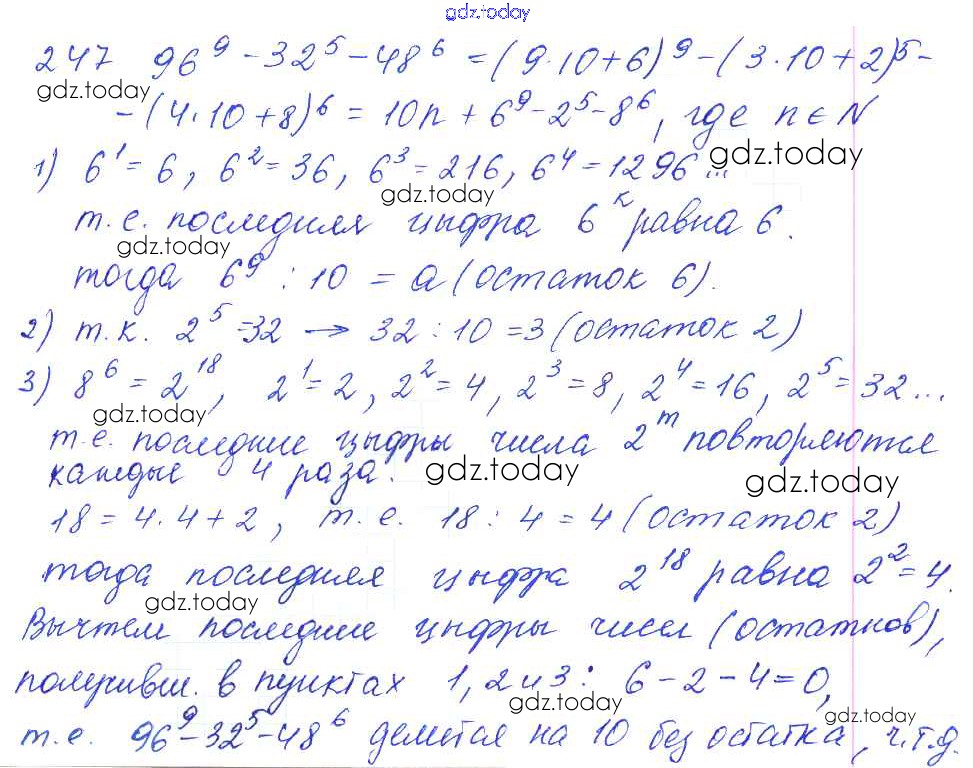 gdz.today
247 96⁹ - 32⁵ - 48⁶ = (9·10+6)⁹ - (3·10+2)⁵ -
gdz.today
- (4·10+8)⁶ = 10n + 6⁹ - 2⁵ - 8⁶, где n ∈ N
1) 6¹ = 6, 6² = 36, 6³ = 216, 6⁴ = 1296...
gdz.today
gdz.today
т.е. последняя цыфра 6ᵏ равна 6.
gdz.today
тогда 6⁹ : 10 = a (остаток 6).
2) т.к. 2⁵ = 32 → 32 : 10 = 3 (остаток 2)
3) 8⁶ = 2¹⁸, 2¹ = 2, 2² = 4, 2³ = 8, 2⁴ = 16, 2⁵ = 32...
gdz.today
т.е. последние цыфры числа 2ᵐ повторяются
каждые 4 раза.
gdz.today
gdz.today
18 = 4·4+2, т.е. 18 : 4 = 4 (остаток 2)
тогда последняя цыфра 2¹⁸ равна 2² = 4.
gdz.today
Вычтем последние цыфры чисел (остатков),
получивш. в пунктах 1, 2 и 3: 6 - 2 - 4 = 0,
gdz.today
gdz.today
т.е. 96⁹ - 32⁵ - 48⁶ делится на 10 без остатка, ч.т.д.
gdz.today